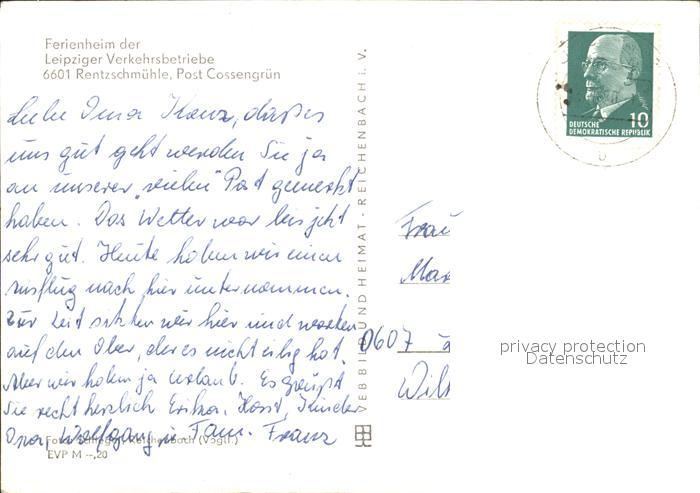 Ferienheim der
Leipziger Verkehrsbetriebe
6601 Rentzschmühle, Post Cossengrün
Liebe Oma Kranz, daß es
uns gut geht werden Sie ja
an unserer "vielen" Post gemerkt
haben. Das Wetter war bis jetzt
sehr gut. Heute haben wir einen
Ausflug nach hier unternommen.
Zur Zeit sitzen wir hier und warten
auf den Ober, der es nicht eilig hat.
Aber wir haben ja Urlaub. Es grüßt
Sie recht herzlich Erika, Horst, Kinder
Oma, Wolfgang u. Fam. Franz
Reichenbach (Vogtl.)
EVP M –,20
VEB BILD UND HEIMAT · REICHENBACH i. V.
10
DEUTSCHE
DEMOKRATISCHE REPUBLIK
Frau
Max
0607 a
Wil
privacy protection
Datenschutz